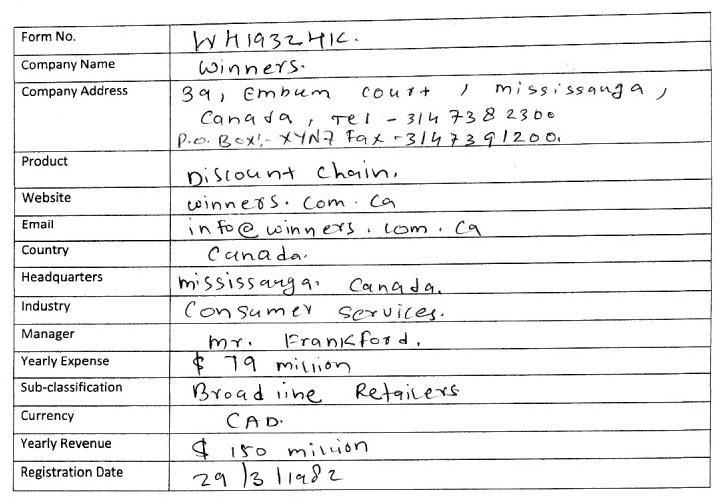 Form No. WH19324IK.
Company Name Winners.
Company Address 39, Embum court, mississauga,
Canada, Tel - 314 738 2300
P.O. Box:- XYN7 Fax - 314 739 1200.
Product Discount Chain.
Website winners.com.ca
Email info@winners.com.ca
Country Canada.
Headquarters mississauga, Canada.
Industry Consumer Services.
Manager mr. Frankford.
Yearly Expense $ 79 million
Sub-classification Broadline Retailers
Currency CAD.
Yearly Revenue $ 150 million
Registration Date 29/3/1982